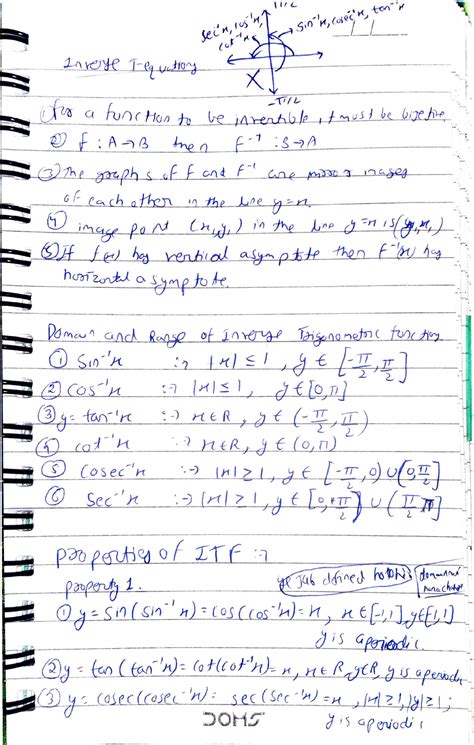 π/2
sec⁻¹x, cos⁻¹x,
cot⁻¹x
sin⁻¹x, cosec⁻¹x, tan⁻¹x
Inverse T-equations
-π/2
① For a function to be invertible, it must be bijective.
② f : A→B then f⁻¹ : B→A
③ The graphs of f and f⁻¹ are mirror images
of each other in the line y=x.
④ image point (x₁,y₁) in the line y=x is (y₁,x₁)
⑤ If f(x) has vertical asymptote then f⁻¹(x) has
horizontal asymptote.
Domain and Range of Inverse Trigonometric function
① Sin⁻¹x :→ |x| ≤ 1, y ∈ [-π/2, π/2]
② cos⁻¹x :→ |x| ≤ 1, y ∈ [0,π]
③ y = tan⁻¹x :→ x∈R, y ∈ (-π/2, π/2)
④ cot⁻¹x :→ x∈R, y ∈ (0,π)
⑤ cosec⁻¹x :→ |x| ≥ 1, y ∈ [-π/2, 0) ∪ (0, π/2]
⑥ Sec⁻¹x :→ |x| ≥ 1, y ∈ [0, π/2) ∪ (π/2, π]
properties of ITF :→
property 1. ye jab defined
① y = sin(sin⁻¹x) = cos(cos⁻¹x) = x, x∈[-1,1], y∈[-1,1]
y is aperiodic.
② y = tan(tan⁻¹x) = cot(cot⁻¹x) = x, x∈R, y∈R, y is aperiodic
③ y = cosec(cosec⁻¹x) = sec(sec⁻¹x) = x, |x| ≥ 1, |y| ≥ 1;
y is aperiodic
DOMS